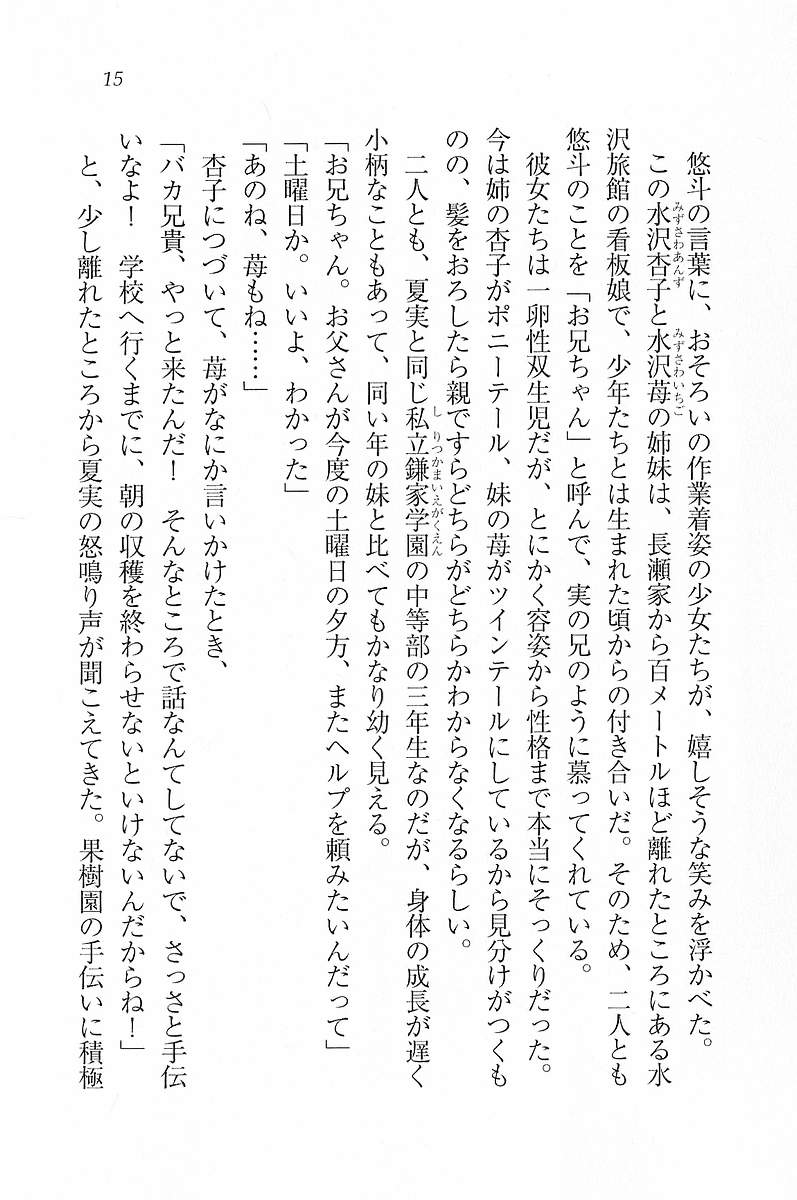 15
悠斗の言葉に、おそろいの作業着姿の少女たちが、嬉しそうな笑みを浮かべた。
この水沢杏子と水沢苺の姉妹は、長瀬家から百メートルほど離れたところにある水
みずさわあんず　みずさわいちご
沢旅館の看板娘で、少年たちとは生まれた頃からの付き合いだ。そのため、二人とも
悠斗のことを「お兄ちゃん」と呼んで、実の兄のように慕ってくれている。
彼女たちは一卵性双生児だが、とにかく容姿から性格まで本当にそっくりだった。
今は姉の杏子がポニーテール、妹の苺がツインテールにしているから見分けがつくも
のの、髪をおろしたら親ですらどちらがどちらかわからなくなるらしい。
二人とも、夏実と同じ私立鎌家学園の中等部の三年生なのだが、身体の成長が遅く
しりつかまいえがくえん
小柄なこともあって、同い年の妹と比べてもかなり幼く見える。
「お兄ちゃん。お父さんが今度の土曜日の夕方、またヘルプを頼みたいんだって」
「土曜日か。いいよ、わかった」
「あのね、苺もね……」
杏子につづいて、苺がなにか言いかけたとき、
「バカ兄貴、やっと来たんだ！　そんなところで話なんてしてないで、さっさと手伝
いなよ！　学校へ行くまでに、朝の収穫を終わらせないといけないんだからね！」
と、少し離れたところから夏実の怒鳴り声が聞こえてきた。果樹園の手伝いに積極